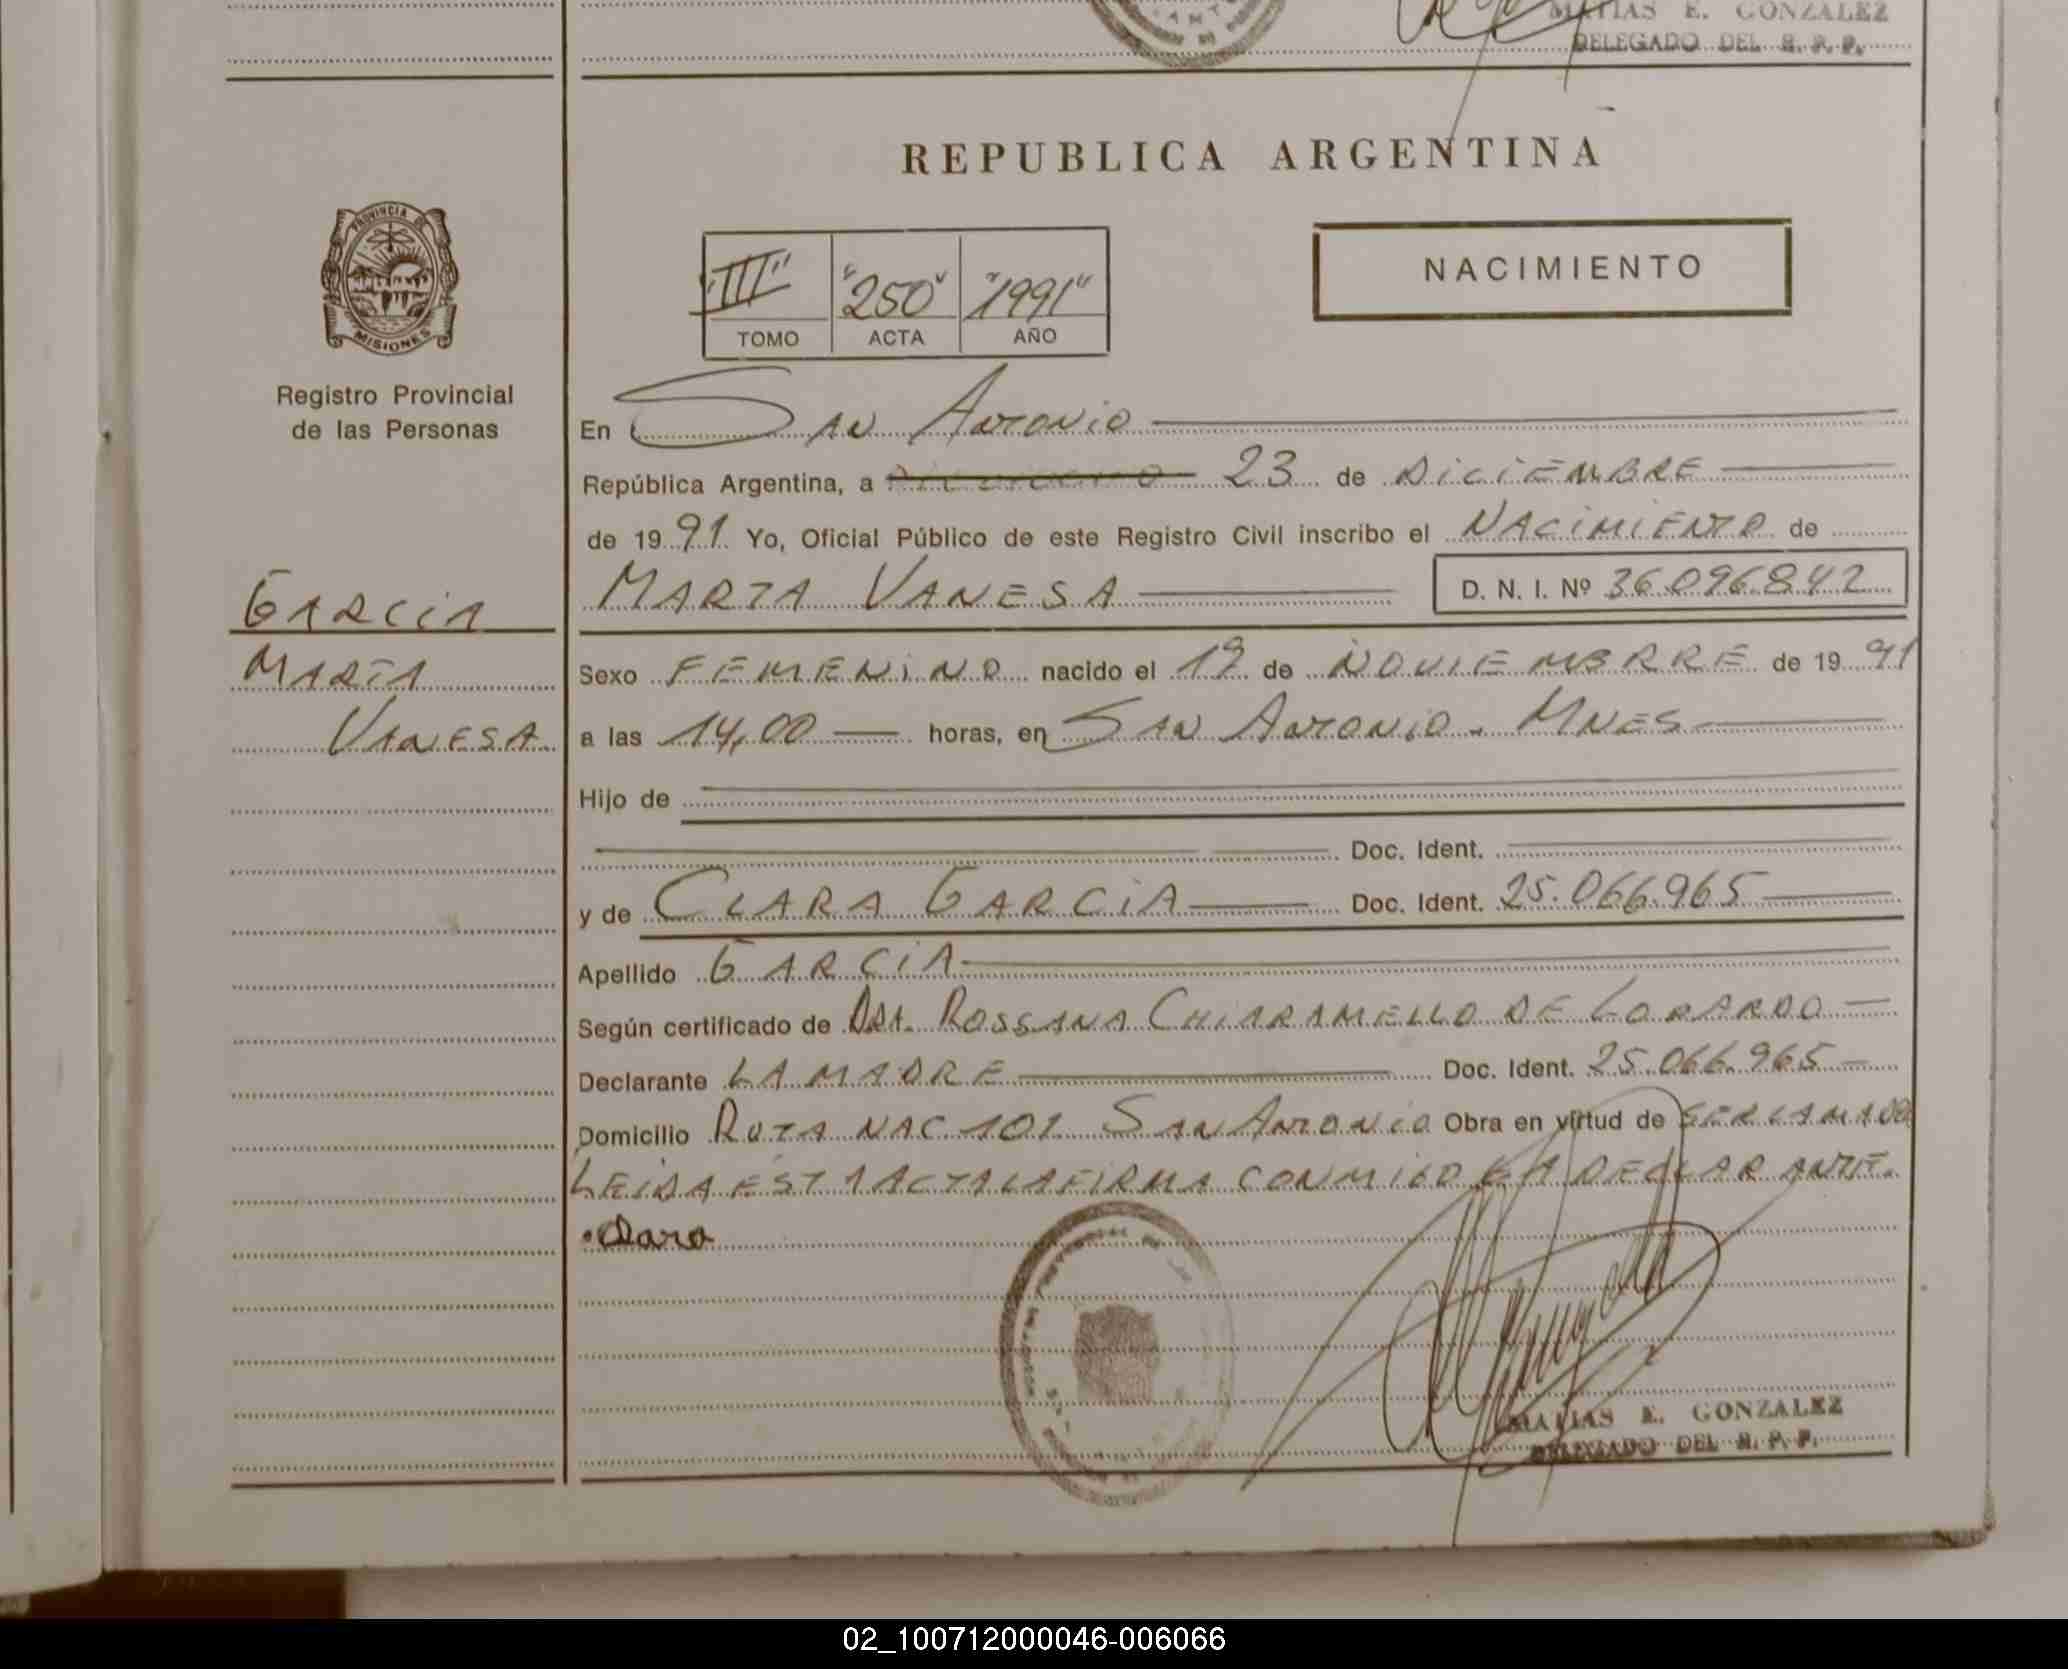 MATIAS E. GONZALEZ
DELEGADO DEL R. P. P.
REPUBLICA ARGENTINA
PROVINCIA DE
MISIONES
Registro Provincial
de las Personas
"III" "250" "1991"
TOMO ACTA AÑO
NACIMIENTO
En San Antonio
República Argentina, a 23 de Diciembre
de 1991 Yo, Oficial Público de este Registro Civil inscribo el Nacimiento de
MARTA VANESA D. N. I. Nº 36.096.842
GARCIA
MARTA
VANESA
Sexo FEMENINO nacido el 19 de NOVIEMBRRE de 1991
a las 14,00 horas, en San Antonio. Mnes
Hijo de
Doc. Ident.
y de CLARA GARCIA Doc. Ident. 25.066.965
Apellido GARCIA
Según certificado de DRA. ROSSANA CHIARAMELLO DE
Declarante LA MADRE Doc. Ident. 25.066.965
Domicilio RUTA NAC 101 SAN ANTONIO Obra en virtud de SER LA MADRE
LEIDA ESTA ACTA LA FIRMA CONMIGO LA DECLARANTE.
Clara
MATIAS E. GONZALEZ
DELEGADO DEL R. P. P.
02_100712000046-006066